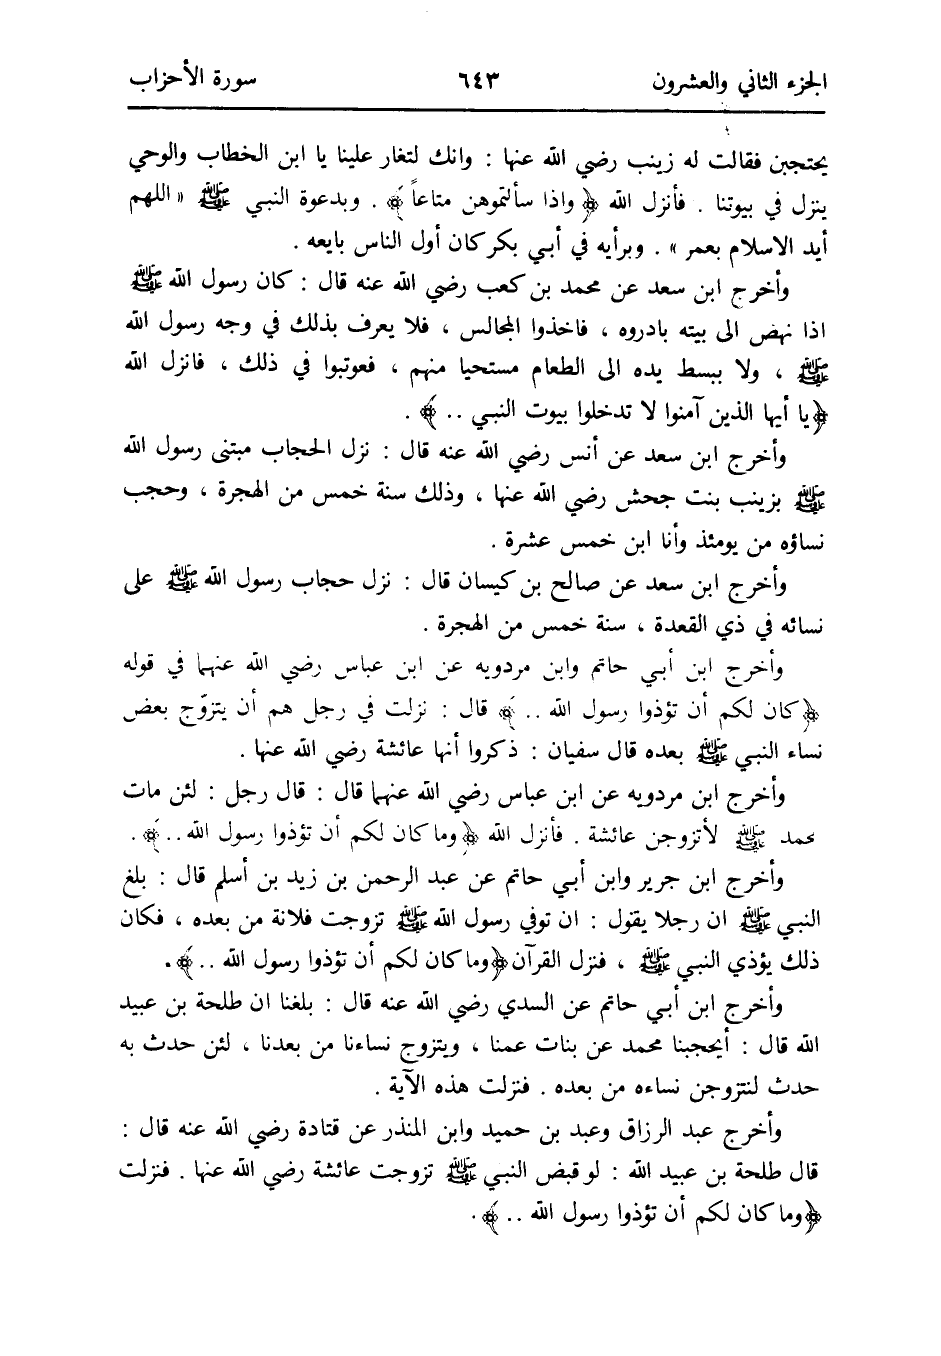 الجزء الثاني والعشرون ٦٤٣ سورة الأحزاب
يحتجبن فقالت له زينب رضي الله عنها : وانك لتغار علينا يا ابن الخطاب والوحي
ينزل في بيوتنا . فأنزل الله ﴿ واذا سألتموهن متاعاً ﴾ . وبدعوة النبي ﷺ « اللهم
أيد الاسلام بعمر » . وبرأيه في أبي بكر كان أول الناس بايعه .
وأخرج ابن سعد عن محمد بن كعب رضي الله عنه قال : كان رسول الله ﷺ
اذا نهض الى بيته بادروه ، فاخذوا المجالس ، فلا يعرف بذلك في وجه رسول الله
ﷺ ، ولا يبسط يده الى الطعام مستحيا منهم ، فعوتبوا في ذلك ، فانزل الله
﴿يا أيها الذين آمنوا لا تدخلوا بيوت النبي .. ﴾ .
وأخرج ابن سعد عن أنس رضي الله عنه قال : نزل الحجاب مبتنى رسول الله
ﷺ بزينب بنت جحش رضي الله عنها ، وذلك سنة خمس من الهجرة ، وحجب
نساؤه من يومئذ وأنا ابن خمس عشرة .
وأخرج ابن سعد عن صالح بن كيسان قال : نزل حجاب رسول الله ﷺ على
نسائه في ذي القعدة ، سنة خمس من الهجرة .
وأخرج ابن أبي حاتم وابن مردويه عن ابن عباس رضي الله عنهما في قوله
﴿كان لكم أن تؤذوا رسول الله .. ﴾ قال : نزلت في رجل هم أن يتزوّج بعض
نساء النبي ﷺ بعده قال سفيان : ذكروا أنها عائشة رضي الله عنها .
وأخرج ابن مردويه عن ابن عباس رضي الله عنهما قال : قال رجل : لئن مات
محمد ﷺ لأتزوجن عائشة . فأنزل الله ﴿وما كان لكم أن تؤذوا رسول الله .. ﴾ .
وأخرج ابن جرير وابن أبي حاتم عن عبد الرحمن بن زيد بن أسلم قال : بلغ
النبي ﷺ ان رجلا يقول : ان توفي رسول الله ﷺ تزوجت فلانة من بعده ، فكان
ذلك يؤذي النبي ﷺ ، فنزل القرآن ﴿وما كان لكم أن تؤذوا رسول الله .. ﴾ .
وأخرج ابن أبي حاتم عن السدي رضي الله عنه قال : بلغنا ان طلحة بن عبيد
الله قال : أيحجبنا محمد عن بنات عمنا ، ويتزوج نساءنا من بعدنا ، لئن حدث به
حدث لنتزوجن نساءه من بعده . فنزلت هذه الآية .
وأخرج عبد الرزاق وعبد بن حميد وابن المنذر عن قتادة رضي الله عنه قال :
قال طلحة بن عبيد الله : لو قبض النبي ﷺ تزوجت عائشة رضي الله عنها . فنزلت
﴿وما كان لكم أن تؤذوا رسول الله .. ﴾ .